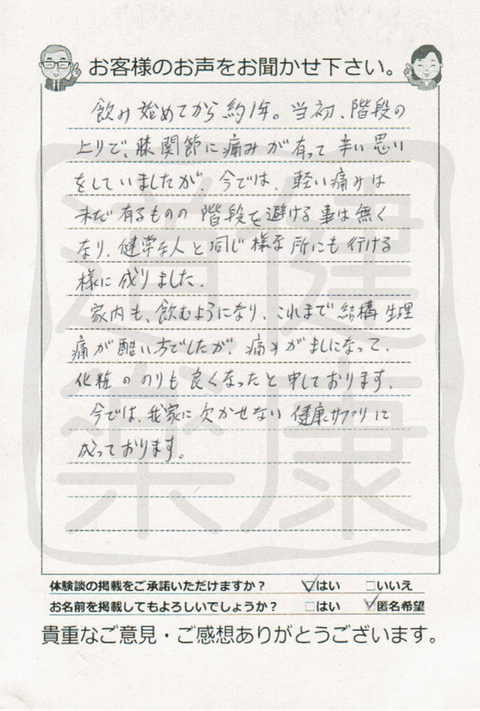 お客様のお声をお聞かせ下さい。
飲み始めてから約1年。当初、階段の
上りで、膝関節に痛みが有って辛い思い
をしていましたが、今では、軽い痛みは
まだ有るものの階段を避ける事は無く
なり、健常な人と同じ様な所にも行ける
様に成りました。
家内も、飲むようになり、これまで結構生理
痛が酷い方でしたが、痛みがましになって、
化粧ののりも良くなったと申しております。
今では、我家に欠かせない健康サプリに
成っております。
健康道楽
体験談の掲載をご承諾いただけますか? はい いいえ
お名前を掲載してもよろしいでしょうか? はい 匿名希望
貴重なご意見・ご感想ありがとうございます。